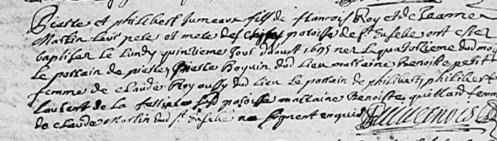 Pierre et philibert jumeaux fils de francois Roy et de Jeanne
Martin leur pere et mere de paroisse de St Eusebe ont estes
baptises le lundy quinziesme jour d'aoust 1695 nes le quatorziesme du mois
le parrain de pierre pierre Boquin dud lieu marraine Benoiste petit
femme de claude Roy aussy dud lieu le parrain de philibert philibert
laurent de la paroisse marraine Benoiste quillard femme
de claude Martin dud St ne signent enquis